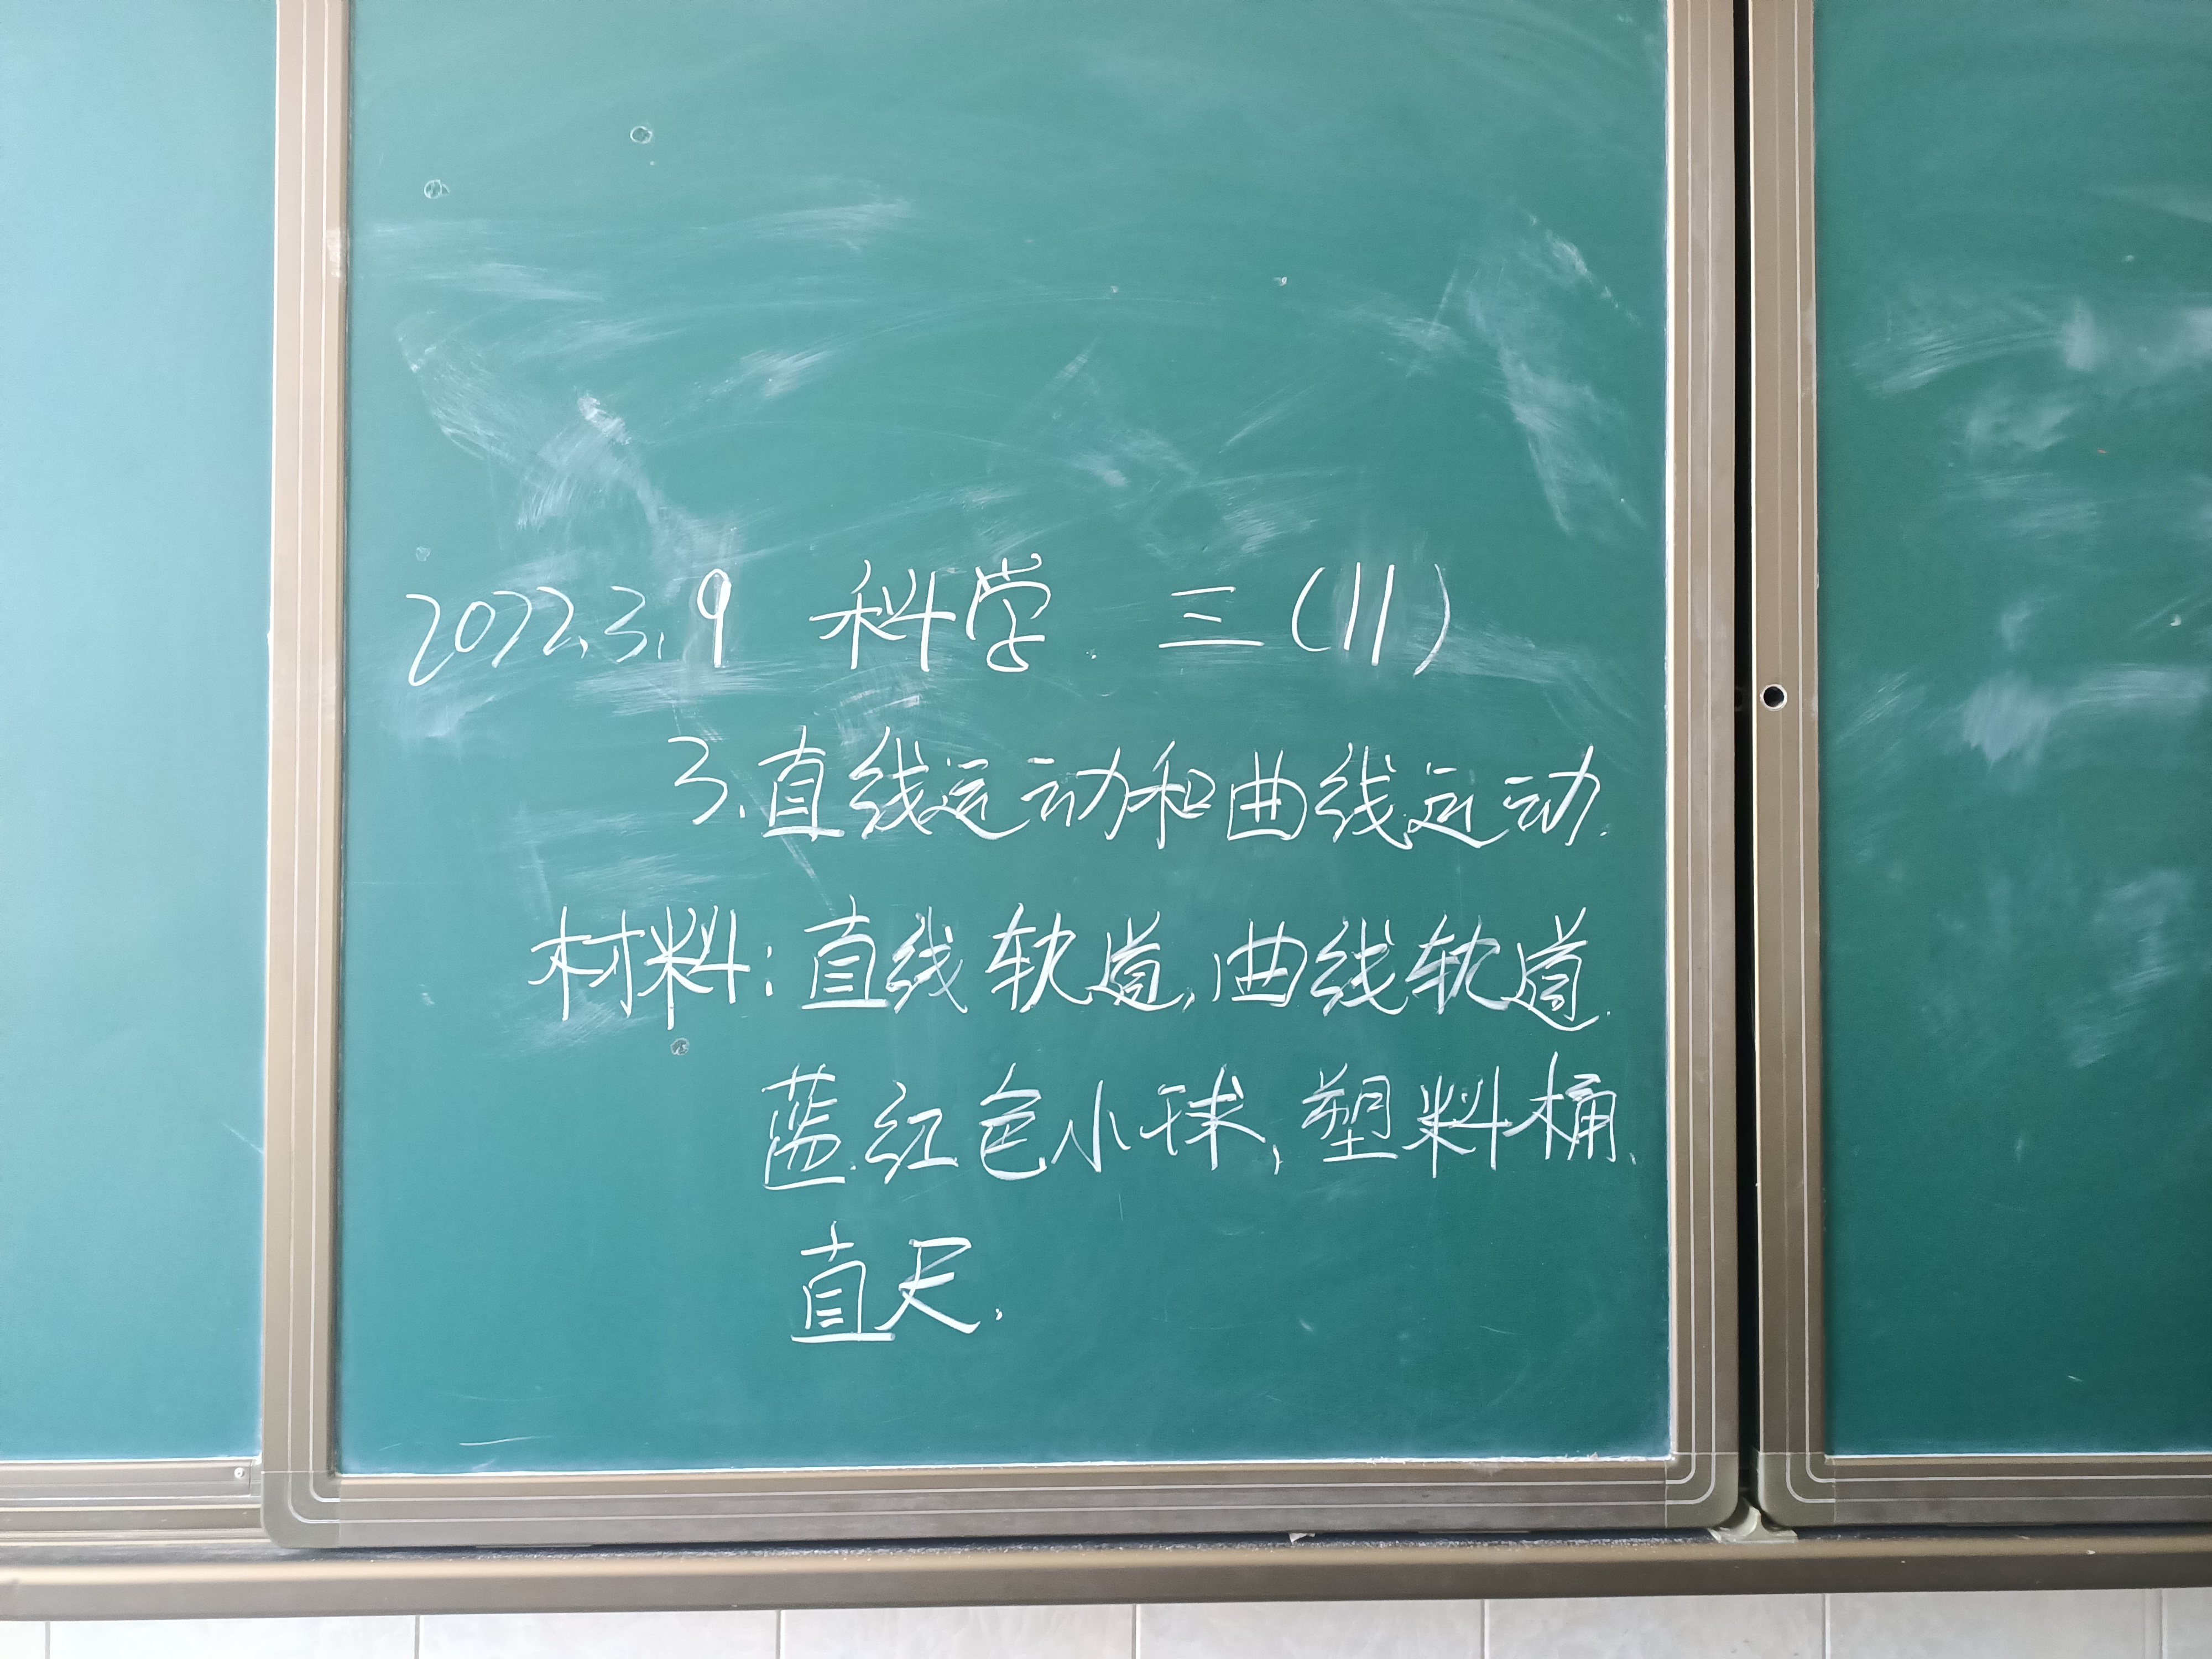 2022.3.9 科学 三(11)
3.直线运动和曲线运动.
材料:直线轨道,曲线轨道.
蓝.红色小球,塑料桶、
直尺.